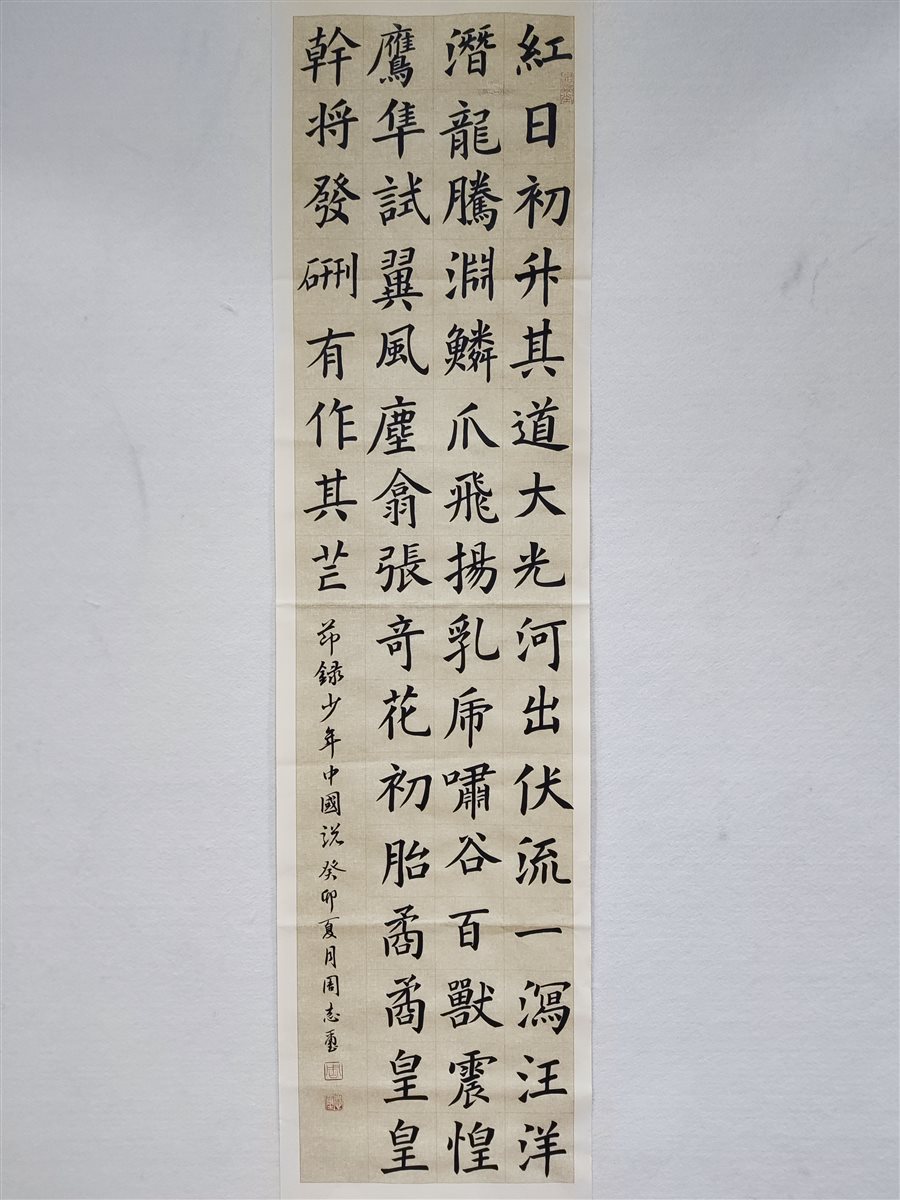 紅日初升其道大光河出伏流一瀉汪洋
潛龍騰淵鱗爪飛揚乳虎嘯谷百獸震惶
鷹隼試翼風塵翕張奇花初胎矞矞皇皇
幹将發硎有作其芒
節録少年中國説癸卯夏月周志